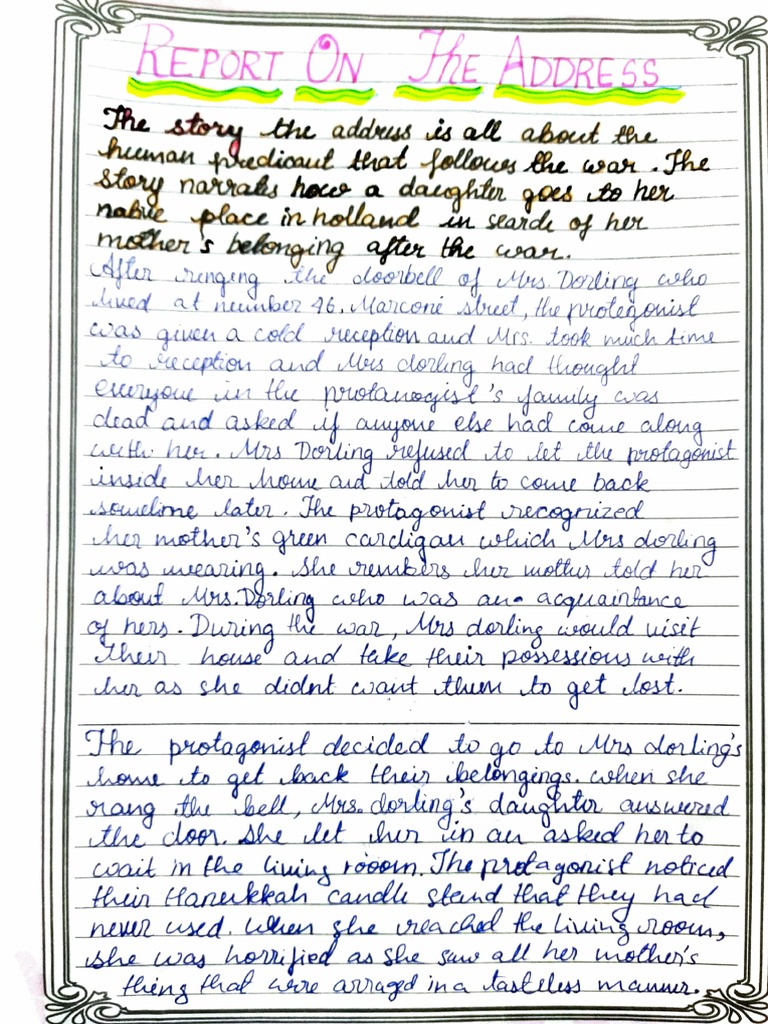 REPORT ON The ADDRESS
The story the address is all about the
human predicant that follows the war. The
story narrates how a daughter goes to her
native place in holland in search of her
mother's belonging after the war.
After ringing the doorbell of Mrs. Dorling who
lived at number 46, Marconi street, the protegonist
was given a cold reception and Mrs. took much time
to reception and Mrs dorling had thought
everyone in the protanogist's family was
dead and asked if anyone else had come along
with her. Mrs Dorling refused to let the protagonist
inside her home and told her to come back
sometime later. The protagonist recognized
her mother's green cardigan which Mrs dorling
was wearing. She rembers her mother told her
about Mrs. Dorling who was an acquaintance
of hers. During the war, Mrs dorling would visit
their house and take their possessions with
her as she didnt want them to get lost.
The protagonist decided to go to Mrs dorling's
home to get back their belongings. when she
rang the bell, Mrs. dorling's daughter answered
the door. She let her in an asked her to
wait in the living rooom. The protagonist noticed
their Hanukkah candle stand that they had
never used. When she reached the living room,
she was horrified as she saw all her mother's
thing that were arraged in a tasteless manner.